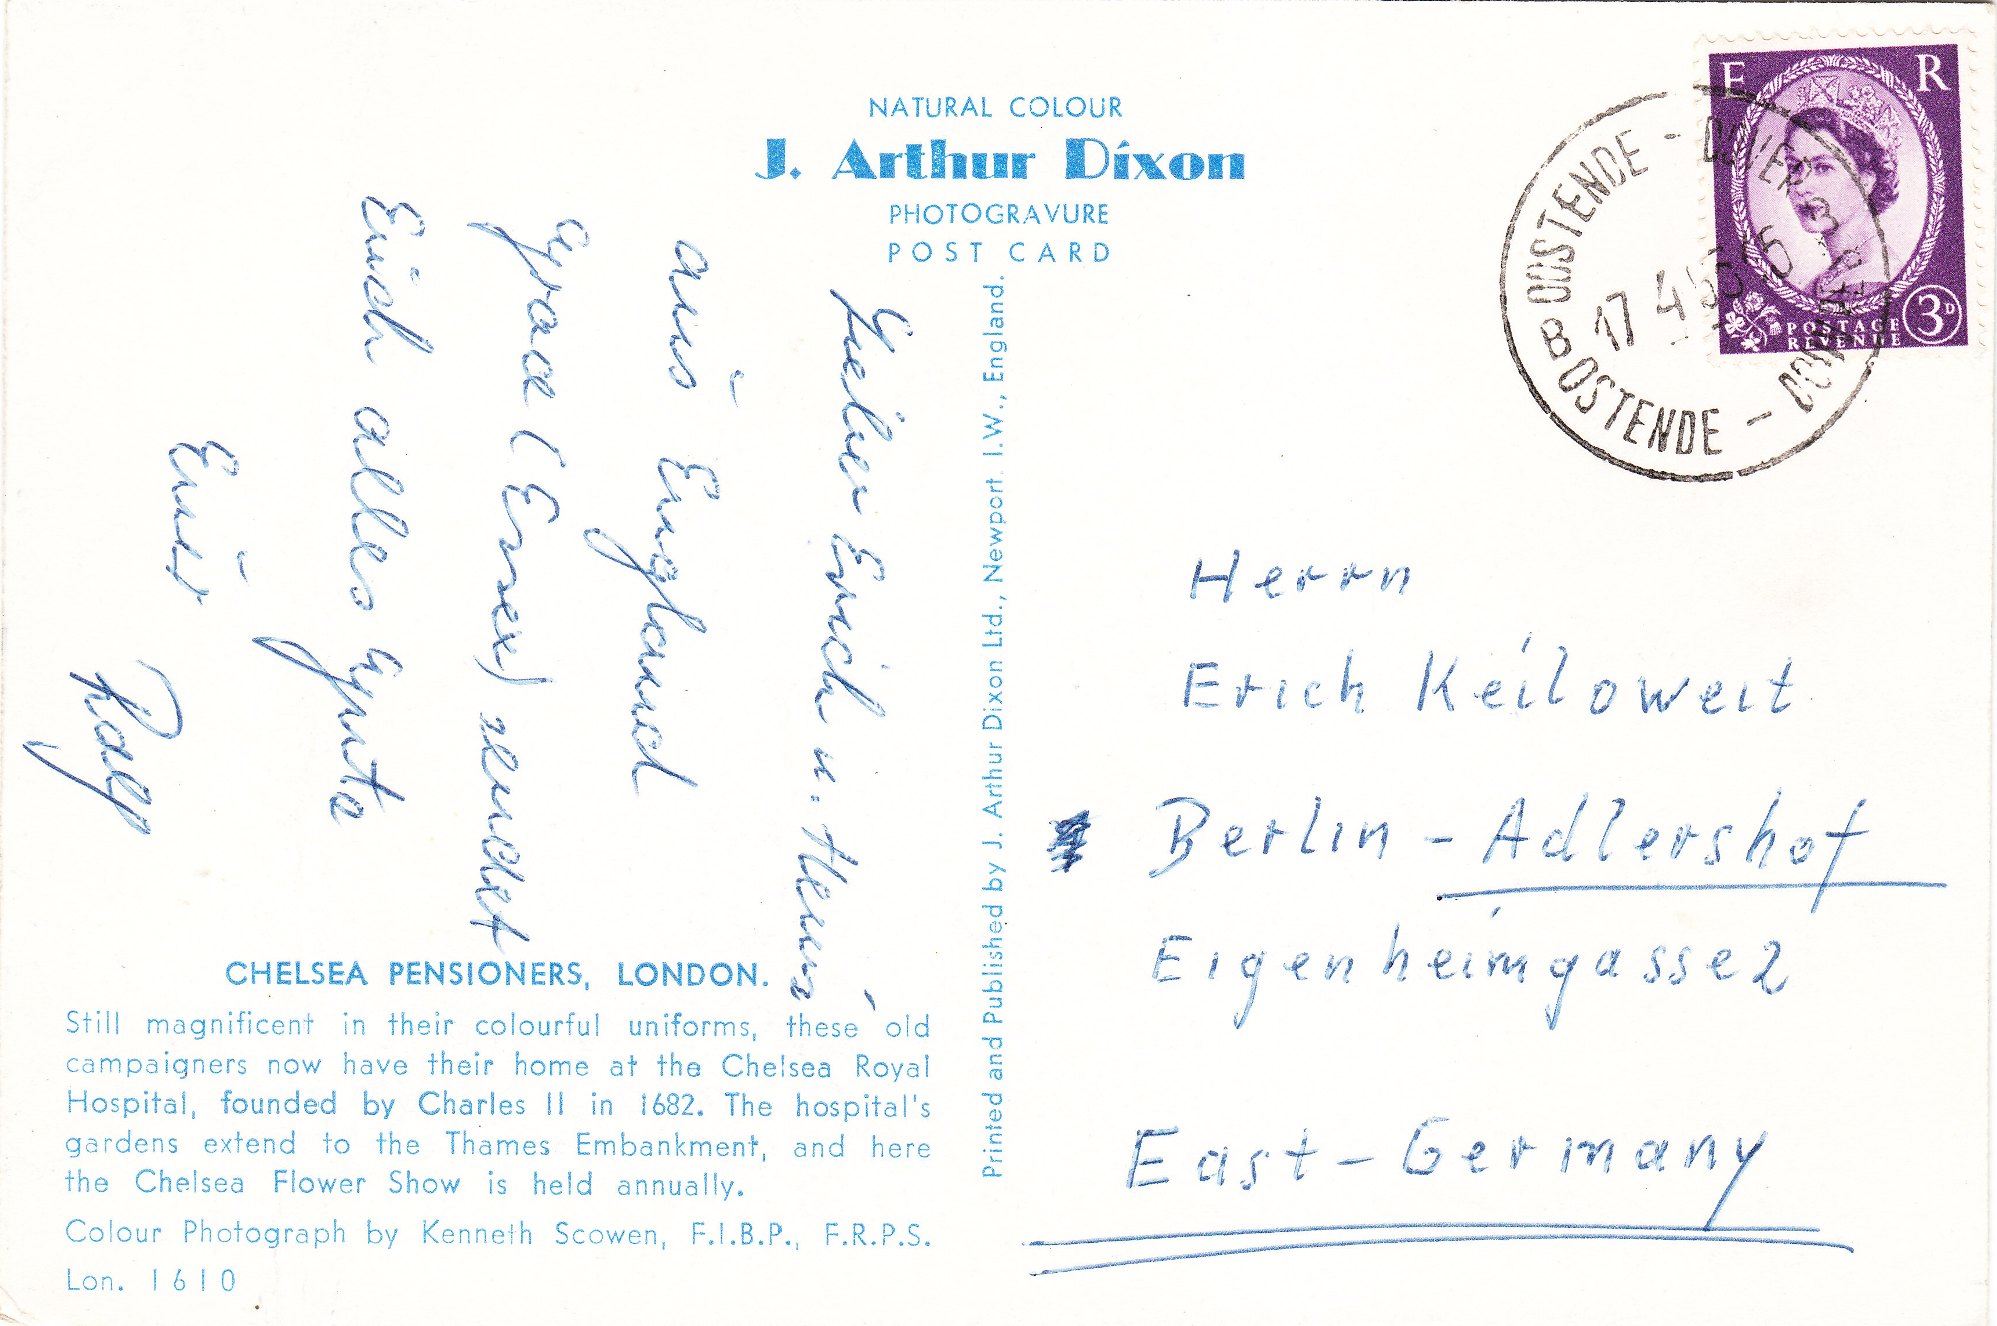 NATURAL COLOUR
J. Arthur Dixon
PHOTOGRAVURE
POST CARD
Lieber Erich u.
aus England
Grace (Essex) sendet
Euch alles Gute
Euer
Ralf
Printed and Published by J. Arthur Dixon Ltd., Newport I.W., England.
OOSTENDE - DOVER
B
17 4
OOSTENDE - DOUVRES
E R
POSTAGE
REVENUE
3D
Herrn
Erich Keiloweit
Berlin - Adlershof
Eigenheimgasse 2
East - Germany
CHELSEA PENSIONERS, LONDON.
Still magnificent in their colourful uniforms, these old
campaigners now have their home at the Chelsea Royal
Hospital, founded by Charles II in 1682. The hospital's
gardens extend to the Thames Embankment, and here
the Chelsea Flower Show is held annually.
Colour Photograph by Kenneth Scowen, F.I.B.P., F.R.P.S.
Lon. 1610